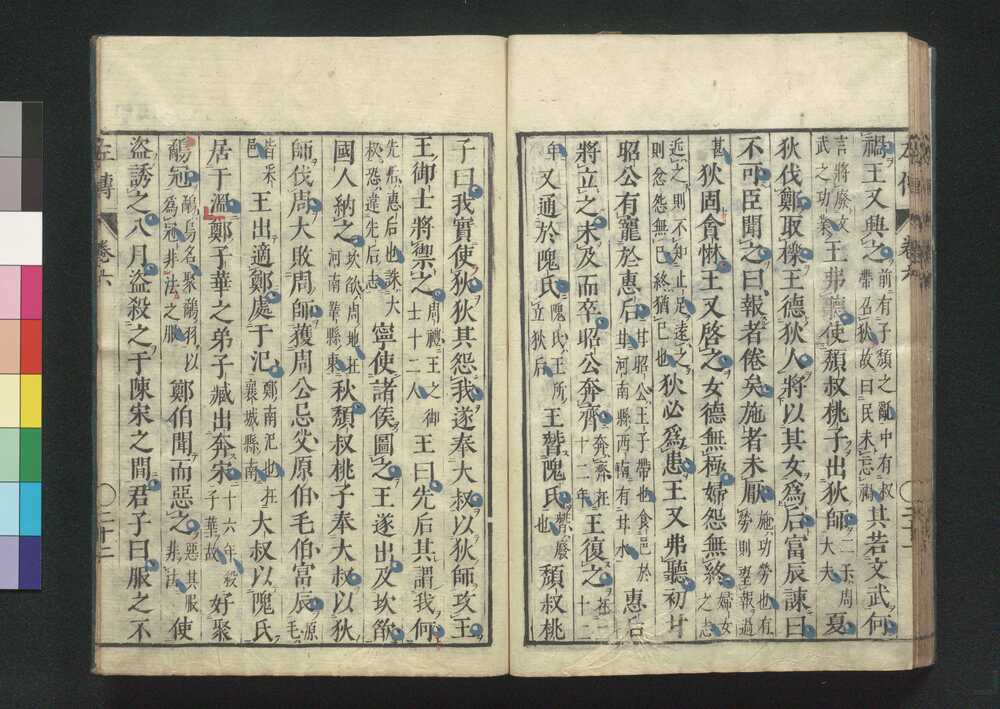 左傳 卷六 二十一
禍王又興之前有子頹之亂中有叔帶召狄故曰民未忘禍其若文武何
言將廢文武之功業王弗聽使頹叔桃子出狄師二子周大夫夏
狄伐鄭取櫟王德狄人將以其女爲后富辰諫曰
不可臣聞之曰報者倦矣施者未厭施功勞也有勞則望報過
甚狄固貪惏王又啓之女德無極婦怨無終婦女之志
近之則不知止足遠之則忿怨無已終猶已也狄必爲患王又弗聽初甘
昭公有寵於惠后甘昭公王子帶也食邑於甘河南縣西南有甘水惠后
將立之未及而卒昭公奔齊奔齊在十二年王復之在二十二
年又通於隗氏隗氏王所立狄后王替隗氏替廢也頹叔桃
子曰我實使狄狄其怨我遂奉大叔以狄師攻王
王御士將禦之周禮王之御士十二人王曰先后其謂我何
先后惠后也誅大叔恐違先后志寧使諸侯圖之王遂出及坎欿
國人納之坎欿周地在河南鞏縣東秋頹叔桃子奉大叔以狄
師伐周大敗周師獲周公忌父原伯毛伯富辰原毛
皆采邑王出適鄭處于氾鄭南氾也在襄城縣南大叔以隗氏
居于溫鄭子華之弟子臧出奔宋十六年殺子華故好聚
鷸冠鷸鳥名聚鷸羽以爲冠非法之服鄭伯聞而惡之惡其服非法使
盜誘之八月盜殺之于陳宋之間君子曰服之不
左傳 卷六 二十二